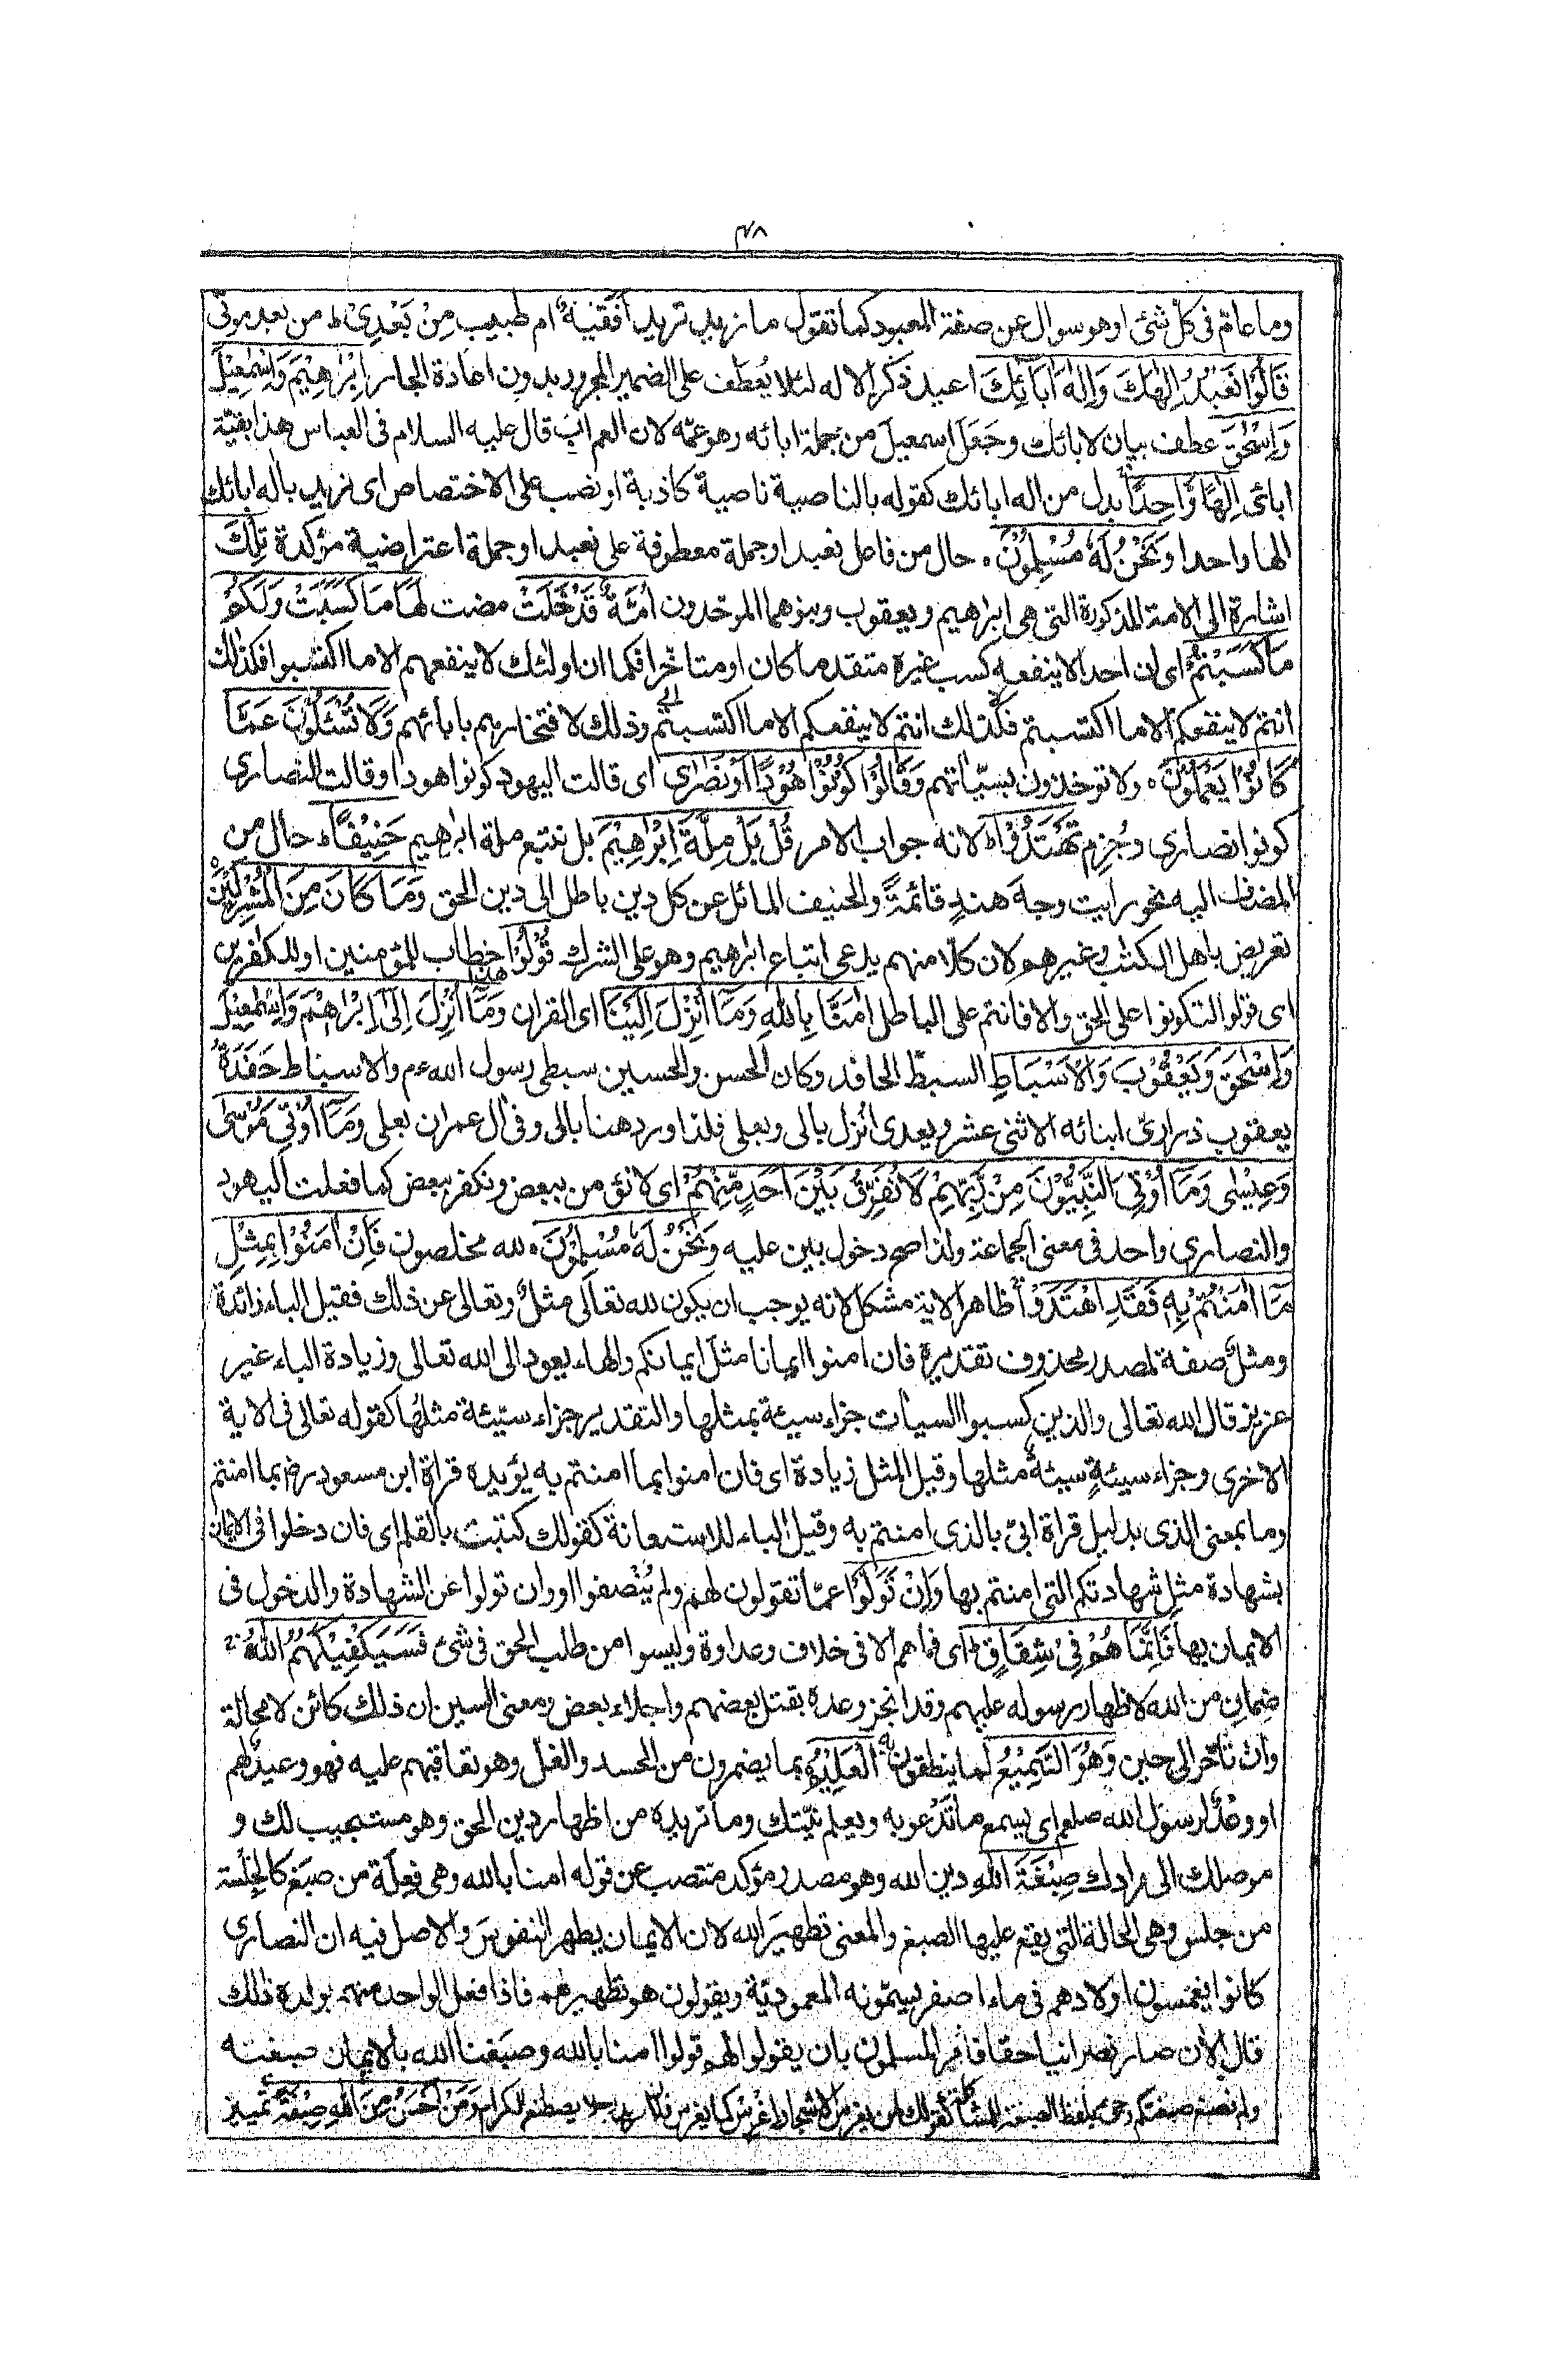 ٤٨
وما عام فى كل شئ او هو سوال عن صفة المعبود كما تقول ما زيد تريد أفقيه ام طبيب مِنْ بَعْدِىْ ط من بعد موتى
قَالُوْا نَعْبُدُ اِلٰهَكَ وَاِلٰهَ اٰبَآئِكَ اعيد ذكر الاله لئلا يُعطف على الضمير المجرور بدون اعادة الجار اِبْرٰهِيْمَ وَاِسْمٰعِيْلَ
وَاِسْحٰقَ عطف بيان لابائك وجَعَلَ اسمعيل من جملة ابائه وهو عمّه لان العم اب قال عليه السلام فى العباس هذا بقيّة
ابائى اِلٰهًا وَّاحِدًا بدل من اله ابائك كقوله بالناصية ناصية كاذبة او نصب على الاختصاص اى نريد باله ابائك
الها واحدا وَنَحْنُ لَهٗ مُسْلِمُوْنَ ه حال من فاعل نعبد او جملة معطوفة على نعبد او جملة اعتراضية مؤكدة تِلْكَ
اشارة الى الامة المذكورة التى هى ابراهيم ويعقوب وبنوهما الموحدون اُمَّةٌ قَدْ خَلَتْ مضت لَهَا مَا كَسَبَتْ وَلَكُمْ
مَا كَسَبْتُمْ اى ان احدا لا ينفعه كسب غيره متقدما كان او متاخّرا فكما ان اولئك لا ينفعهم الا ما اكتسبوا فكذلك
انتم لا ينفعكم الا ما اكتسبتم فكذلك انتم لا ينفعكم الا ما اكتسبتم وذلك لافتخارهم بابائهم وَلَا تُسْئَلُوْنَ عَمَّا
كَانُوْا يَعْمَلُوْنَ ه ولا توخذون بسيّاتهم وَقَالُوْا كُوْنُوْا هُوْدًا اَوْ نَصٰرٰى اى قالت اليهود كونوا هودا وقالت النصارى
كونوا نصارى وجُزم تَهْتَدُوْا لانه جواب الامر قُلْ بَلْ مِلَّةَ اِبْرٰهِيْمَ بل نتبع ملة ابراهيم حَنِيْفًا حال من
المضاف اليه نحو رايت وجهَ هندٍ قائمةً والحنيف المائل عن كل دين باطل الى دين الحق وَمَا كَانَ مِنَ الْمُشْرِكِيْنَ ه
تعريض باهل الكتب وغيرهم لان كلا منهم يدعى اتباع ابرهيم وهو على الشرك قُوْلُوْا خطاب للمؤمنين او للكفرين
اى قولوا لتكونوا على الحق والا فانتم على الباطل اٰمَنَّا بِاللّٰهِ وَمَآ اُنْزِلَ اِلَيْنَا اى القران وَمَآ اُنْزِلَ اِلٰٓى اِبْرٰهِيْمَ وَاِسْمٰعِيْلَ
وَاِسْحٰقَ وَيَعْقُوْبَ وَالْاَسْبَاطِ السبط الحافد وكان الحسن والحسين سبطى رسول الله عم والاسباط حَفَدَةُ
يعقوب ذرارىّ ابنائه الاثنى عشر ويعدى انزل بالى وبعلى فلذا ورد هنا بالى وفى ال عمران بعلى وَمَآ اُوْتِىَ مُوْسٰى
وَعِيْسٰى وَمَآ اُوْتِىَ النَّبِيُّوْنَ مِنْ رَّبِّهِمْ لَا نُفَرِّقُ بَيْنَ اَحَدٍ مِّنْهُمْ اى لا نؤمن ببعض ونكفر ببعض كما فعلت اليهود
والنصارى واحد فى معنى الجماعة ولذا صح دخول بين عليه وَنَحْنُ لَهٗ مُسْلِمُوْنَ ه لله مخلصون فَاِنْ اٰمَنُوْا بِمِثْلِ
مَآ اٰمَنْتُمْ بِهٖ فَقَدِ اهْتَدَوْا ظاهر الاية مشكل لانه يوجب ان يكون لله تعالى مثلٌ وتعالى عن ذلك فقيل الباء زائدة
ومثل صفة لمصدر محذوف تقديره فان امنوا ايمانا مثل ايمانكم والهاء يعود الى الله تعالى وزيادة الباء غير
عزيز قال الله تعالى والذين كسبوا السيات جزاء سيئة بمثلها والتقدير جزاء سيّئة مثلها كقوله تعالى فى الاية
الاخرى وجزاء سيئةٍ سيئةٌ مثلها وقيل المثل زيادة اى فان امنوا بما امنتم به يؤيده قراة ابن مسعود رض بما امنتم
وما بمعنى الذى بدليل قراة ابىّ بالذى امنتم به وقيل الباء للاستعانة كقولك كتبت بالقلم اى فان دخلوا فى الايمان
بشهادة مثل شهادتكم التى امنتم بها وَاِنْ تَوَلَّوْا عما تقولون لهم ولم يُنْصفوا او وان تولوا عن الشهادة والدخول فى
الايمان بها فَاِنَّمَا هُمْ فِىْ شِقَاقٍ اى فما هم الا فى خلاف وعداوة وليسوا من طلب الحق فى شئ فَسَيَكْفِيْكَهُمُ اللّٰهُ
ضمان من الله لاظهار رسوله عليهم وقد انجز وعده بقتل بعضهم واجلاء بعض ومعنى السين ان ذلك كائن لا محالة
وان تأخر الى حين وَهُوَ السَّمِيْعُ لما ينطقون به الْعَلِيْمُ بما يضمرون من الحسد والغل وهو معاقبهم عليه فهو وعيد لهم
او وعد لرسول الله صلعم اى يسمع ما تدعو به ويعلم نيّتك وما تريده من اظهار دين الحق وهو مستجيب لك و
موصلك الى مرادك صِبْغَةَ اللّٰهِ دين الله وهو مصدر مؤكد منتصب عن قوله امنا بالله وهى فِعلة من صبغ كالجِلسة
من جلس وهى الحالة التى يقع عليها الصبغ والمعنى تطهيرَ الله لان الايمان يطهر النفوس والاصل فيه ان النصارى
كانوا يغمسون اولادهم فى ماء اصفر يسمّونه المعموديّة ويقولون هو تطهير لهم فاذا فعل الواحد منهم بولده ذلك
قال الأن صار نصرانيا حقا فأمر المسلمون بان يقولوا لهم قولوا امنا بالله وصبغنا الله بالايمان صبغته
ولم نصبغ صبغتكم وجئ بلفظ الصبغة للمشاكلة كقولك لمن يغرس الاشجار اغرس كما يغرس فلان تريد رجلا يصطنع الكرام وَمَنْ اَحْسَنُ مِنَ اللّٰهِ صِبْغَةً تمييز